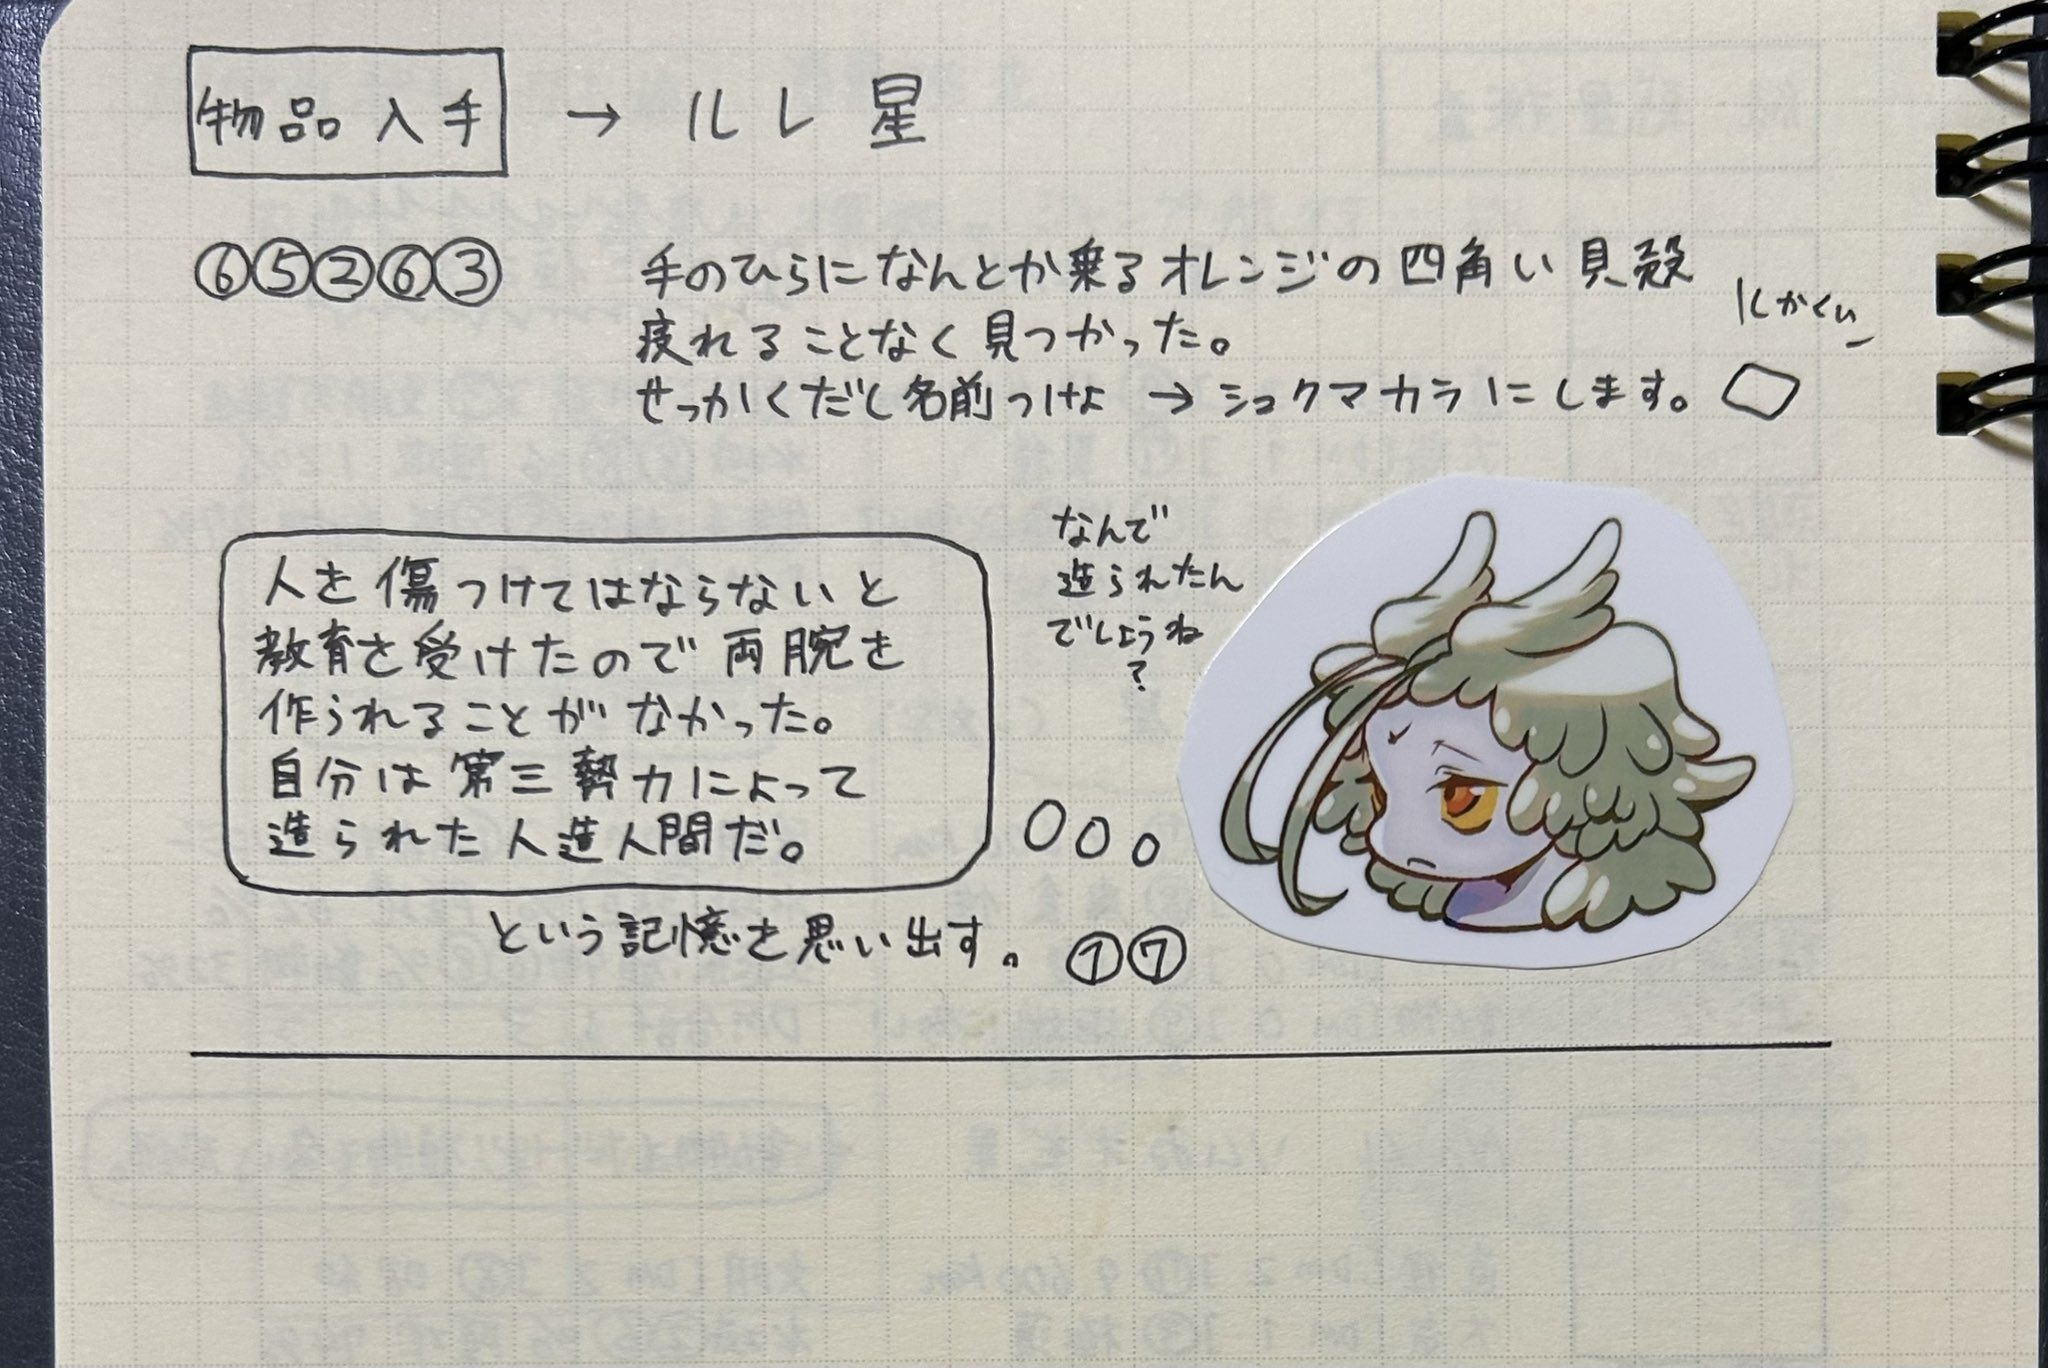 物品入手 → ルレ星
⑥⑤②⑥③
手のひらになんとか乗るオレンジの四角い貝殻
疲れることなく見つかった。
せっかくだし名前つけよ → シュクマカラにします。
しかくい
なんで
造られたん
でしょうね
?
人を傷つけてはならないと
教育を受けたので両腕を
作られることがなかった。
自分は第三勢力によって
造られた人造人間だ。
という記憶を思い出す。 ①⑦